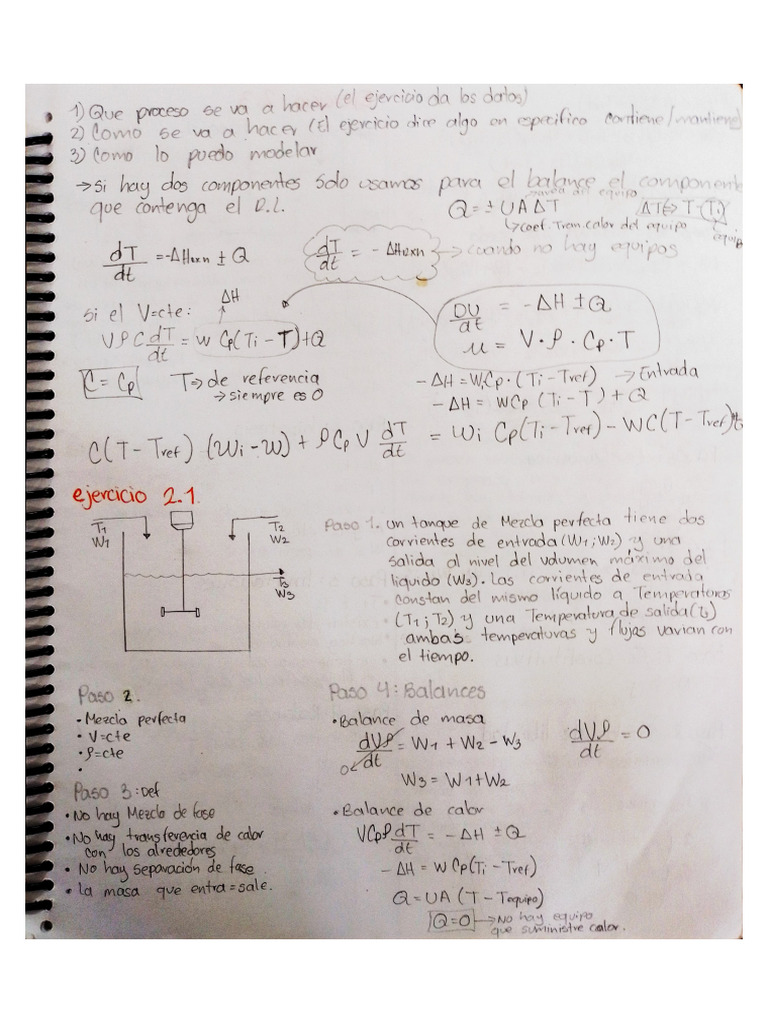 1) Que proceso se va a hacer (el ejercicio da los datos)
2) Como se va a hacer (El ejercicio dice algo en especifico contiene/mantiene)
3) Como lo puedo modelar
→ si hay dos componentes solo usamos para el balance el componente
que contenga el D.L.
Q = ± UAΔT
→ área del equipo
↳ coef. Tran. calor del equipo
ΔT ⇒ T - (T.)
equipo
dT/dt = -ΔHexn ± Q
dT/dt = - ΔHexn → cuando no hay equipos
si el V=cte:
ΔH
VρC dT/dt = w Cp(Ti - T) + Q
DU/dt = -ΔH ± Q
u = V · ρ · Cp · T
C = Cp
T ⇒ de referencia
→ siempre es 0
- ΔH = W.Cp · (Ti - Tref) → Entrada
- ΔH = WCp (Ti - T) + Q
C(T - Tref) · (Wi - W) + ρ Cp V dT/dt = Wi Cp(Ti - Tref) - WC(T - Tref)
ejercicio 2.1
T1
W1
T2
W2
T3
W3
Paso 1. un tanque de Mezcla perfecta tiene dos
corrientes de entrada (W1;W2) y una
salida al nivel del volumen máximo del
liquido (W3). Las corrientes de entrada
constan del mismo líquido a Temperaturas
(T1;T2) y una Temperatura de salida (t3)
ambas temperaturas y flujos varian con
el tiempo.
Paso 2.
• Mezcla perfecta
• V=cte
• ρ=cte
•
Paso 3: Def
• No hay Mezcla de fase
• No hay transferencia de calor
con los alrededores
• No hay separación de fase.
• La masa que entra = sale.
Paso 4: Balances
• Balance de masa
dVρ/dt = W1 + W2 - W3
0
dVρ/dt = 0
W3 = W1 + W2
• Balance de calor
VCpρ dT/dt = - ΔH ± Q
- ΔH = W Cp(Ti - Tref)
Q = UA (T - Tequipo)
Q=0 → No hay equipo
que suministre calor.